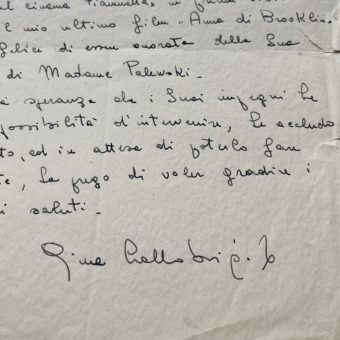 al cinema Fiammetta, in prima
il mio ultimo film "Anna di Brooklin.
felice di essere onorata della Sua
di Madame Palewski.
speranza che i Suoi impegni Le
possibilità d'intervenire, Le accludo
ed in attesa di poterLo fare
La prego di voler gradire i
saluti.
Gina Lollobrigida